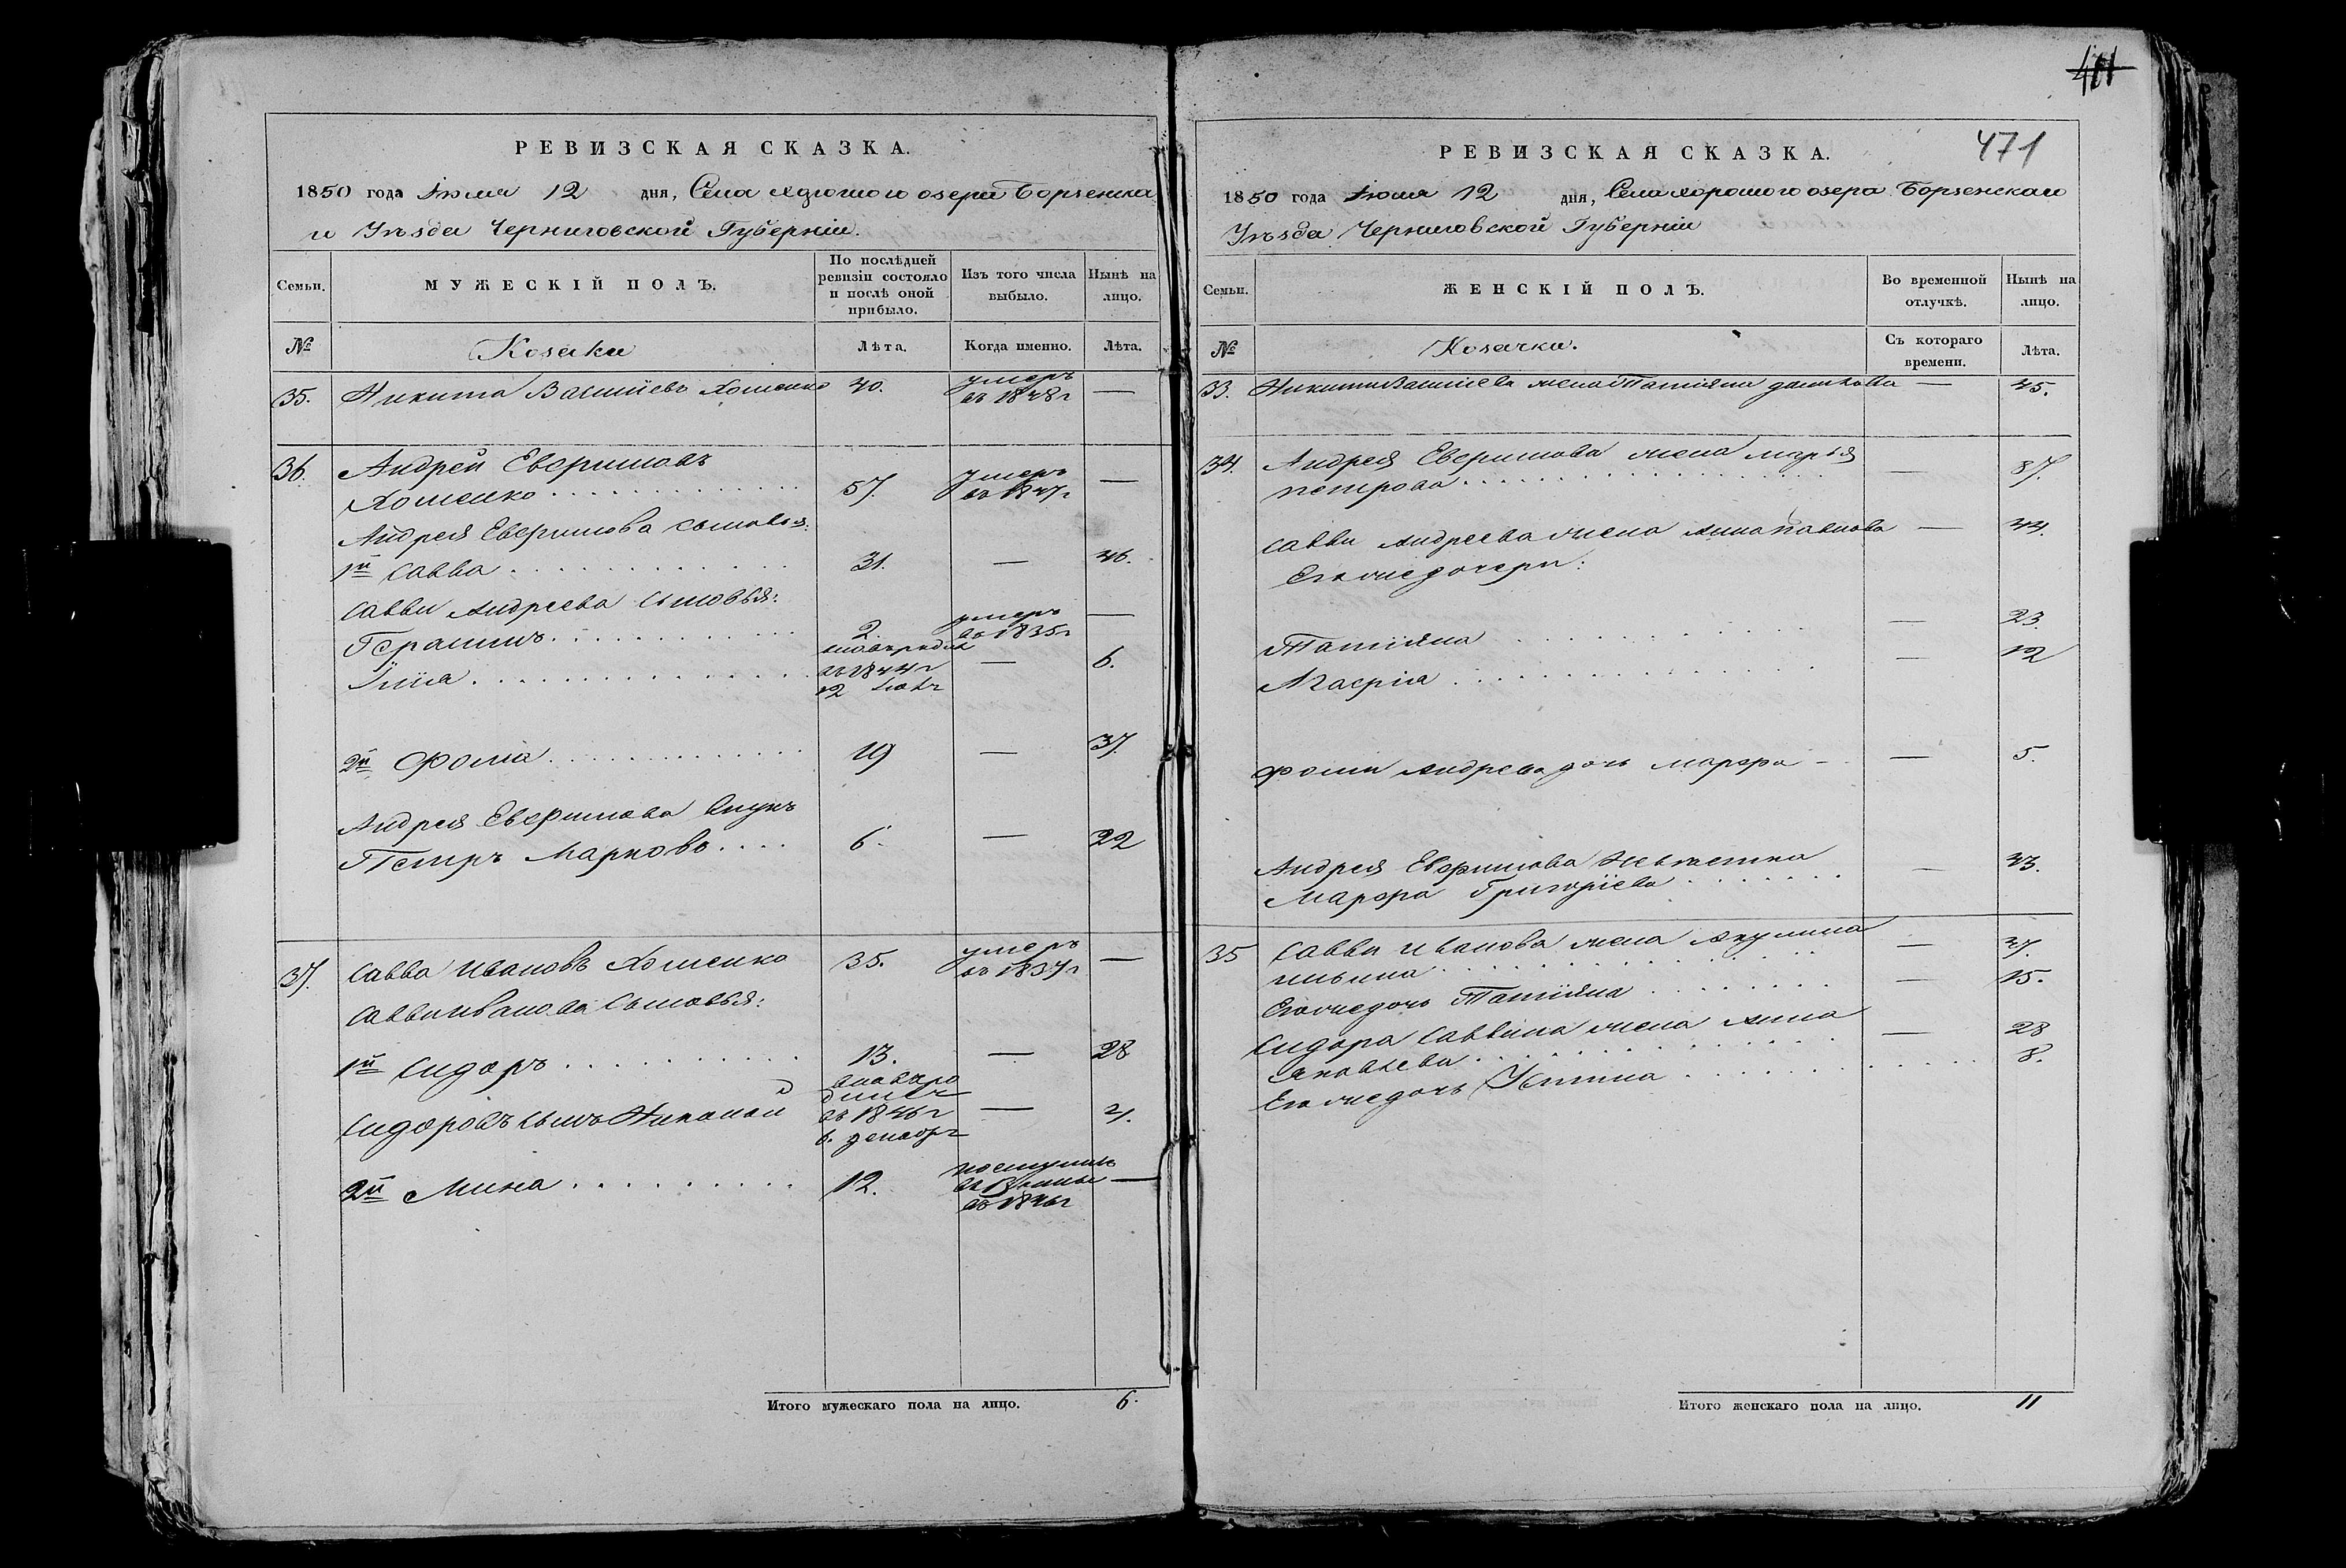 РЕВИЗСКАЯ СКАЗКА.
1850 года Июля 12 дня, Села хорошого озера Борзенска
го Уѣзда Черниговской Губерніи.
Семьи.
МУЖЕСКІЙ ПОЛЪ.
По послѣдней ревизіи состояло и послѣ оной прибыло.
Изъ того числа выбыло.
Нынѣ на лицо.
№
Козаки
Лѣта.
Когда именно.
Лѣта.
35. Никита Васильевъ Хоменко 40. умеръ —
въ 1848г
36. Андрей Евфимовъ
Хоменко 57. умеръ —
въ 1847г
Андрея Евфимова сыновья:
1й Савва 31. — 46.
Саввы Андреева сыновья:
Герасимъ 2. умеръ —
въ 1835г
Илія — 6.
въ 1844г
2й Фома 19 — 37.
Андрея Евфимова внукъ
Петръ Марковъ 6. — 22
37. Савва Ивановъ Хоменко 35. умеръ —
въ 1837г
Саввы Иванова сыновья:
1й Сидоръ 13. — 28
вновь ро
Сидоровъ сынъ Николай
въ 1846г — 4.
6. декабр
2й Мина 12. поступилъ —
въ 1846г
Итого мужескаго пола на лицо. 6.
411
471
РЕВИЗСКАЯ СКАЗКА.
1850 года Июля 12 дня, Села хорошого озера Борзенскаго
Уѣзда Черниговской Губерніи
Семьи.
ЖЕНСКІЙ ПОЛЪ.
Во временной отлучкѣ.
Нынѣ на лицо.
№
Козачки.
Съ котораго времени.
Лѣта.
33. Никиты Васильева жена Татіяна — 45.
34. Андрея Евфимова жена Марья
Петрова — 87.
Саввы Андреева жена Анна Павлова — 44.
Его же дочери:
Татіяна — 23.
Марія — 12
Фомы Андреева дочь Марфа — 5.
Андрея Евфимова невестка
Марфа Григоріева — 43.
35 Саввы Иванова жена Акулина
Ильина — 47.
Его же дочь Татіяна — 15.
Сидора Саввина жена Анна
Яковлева — 28
Его же дочь Устина 8.
Итого женскаго пола на лицо. 11